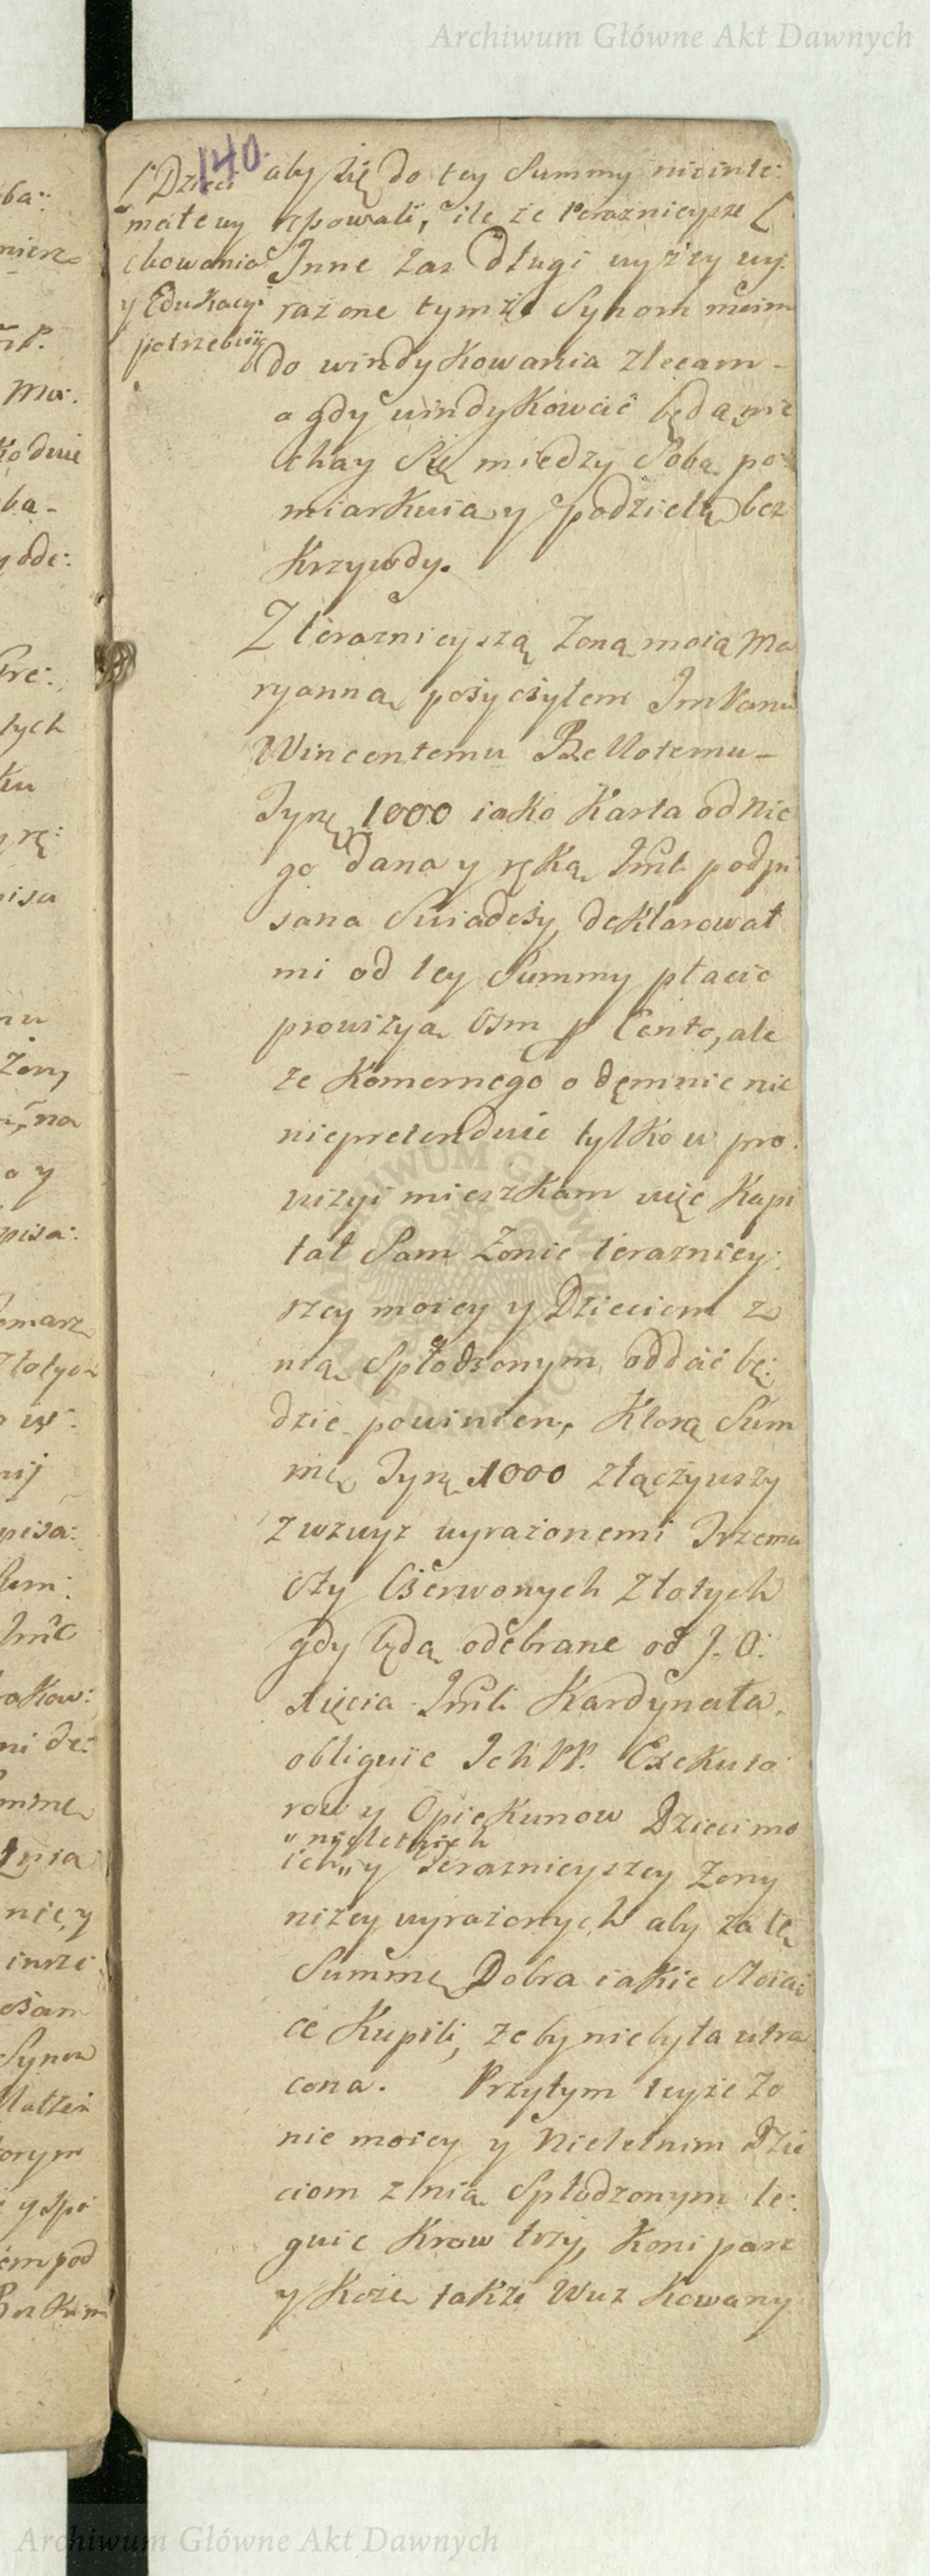 Archiwum Główne Akt Dawnych
140.
[Dzieci
małe wy
chowania
y Edukacyi
potrzebuią
aby się do tey Summy nieinte:
ressowali, ile że teraznieysze [
Inne zas Długi wyzży wy:
rażone tymże Synom moim
do windykowania zlecam -
a gdy windykować będą nie
chay się miedzy Sobą po:
miarkuią y podzielą bez
Krzywdy.
Z teraznieyszą Zoną moią Ma
ryanną pożyczyłem JmPanu
Wincentemu Bellotemu -
Tynf. 1000 iako Karta od Nie
go dana y ręką Jmci podpi
sana Swiadczy, deklarował
mi od tey Summy płacić
prowizyą Osm p Cento, ale
że Komornego odemnie nie
niepretenduie tylko w pro:
wizyi mieszkam więc Kapi
tał Sam Zonie terazniey:
szey moiey y Dzieciom z
nią Spłodzonym oddać bę:
dzie powinien, Ktorą Sum
mę Tynf. 1000 złączywszy
z wzwyz wyrażonemi Trzema
sty Czerwonych Złotych
gdy będą odebrane od J. O.
Xięcia Jmci Kardynała.
obliguię Ich PP. Exekuto
row y Opiekunow Dzieci mo
" nieletnich
ich " y Teraznieyszey Zony
niżey wyrażonych aby za tę
Summę Dobra iakie Stoią
ce Kupili, żeby niebyła utra
cona. Przytym teyże Zo
nie moiey y Nieletnim Dzie
ciom z nią Spłodzonym le:
guię Krow trzy, Koni parę
y Kozę także Wuz Kowany
Archiwum Główne Akt Dawnych